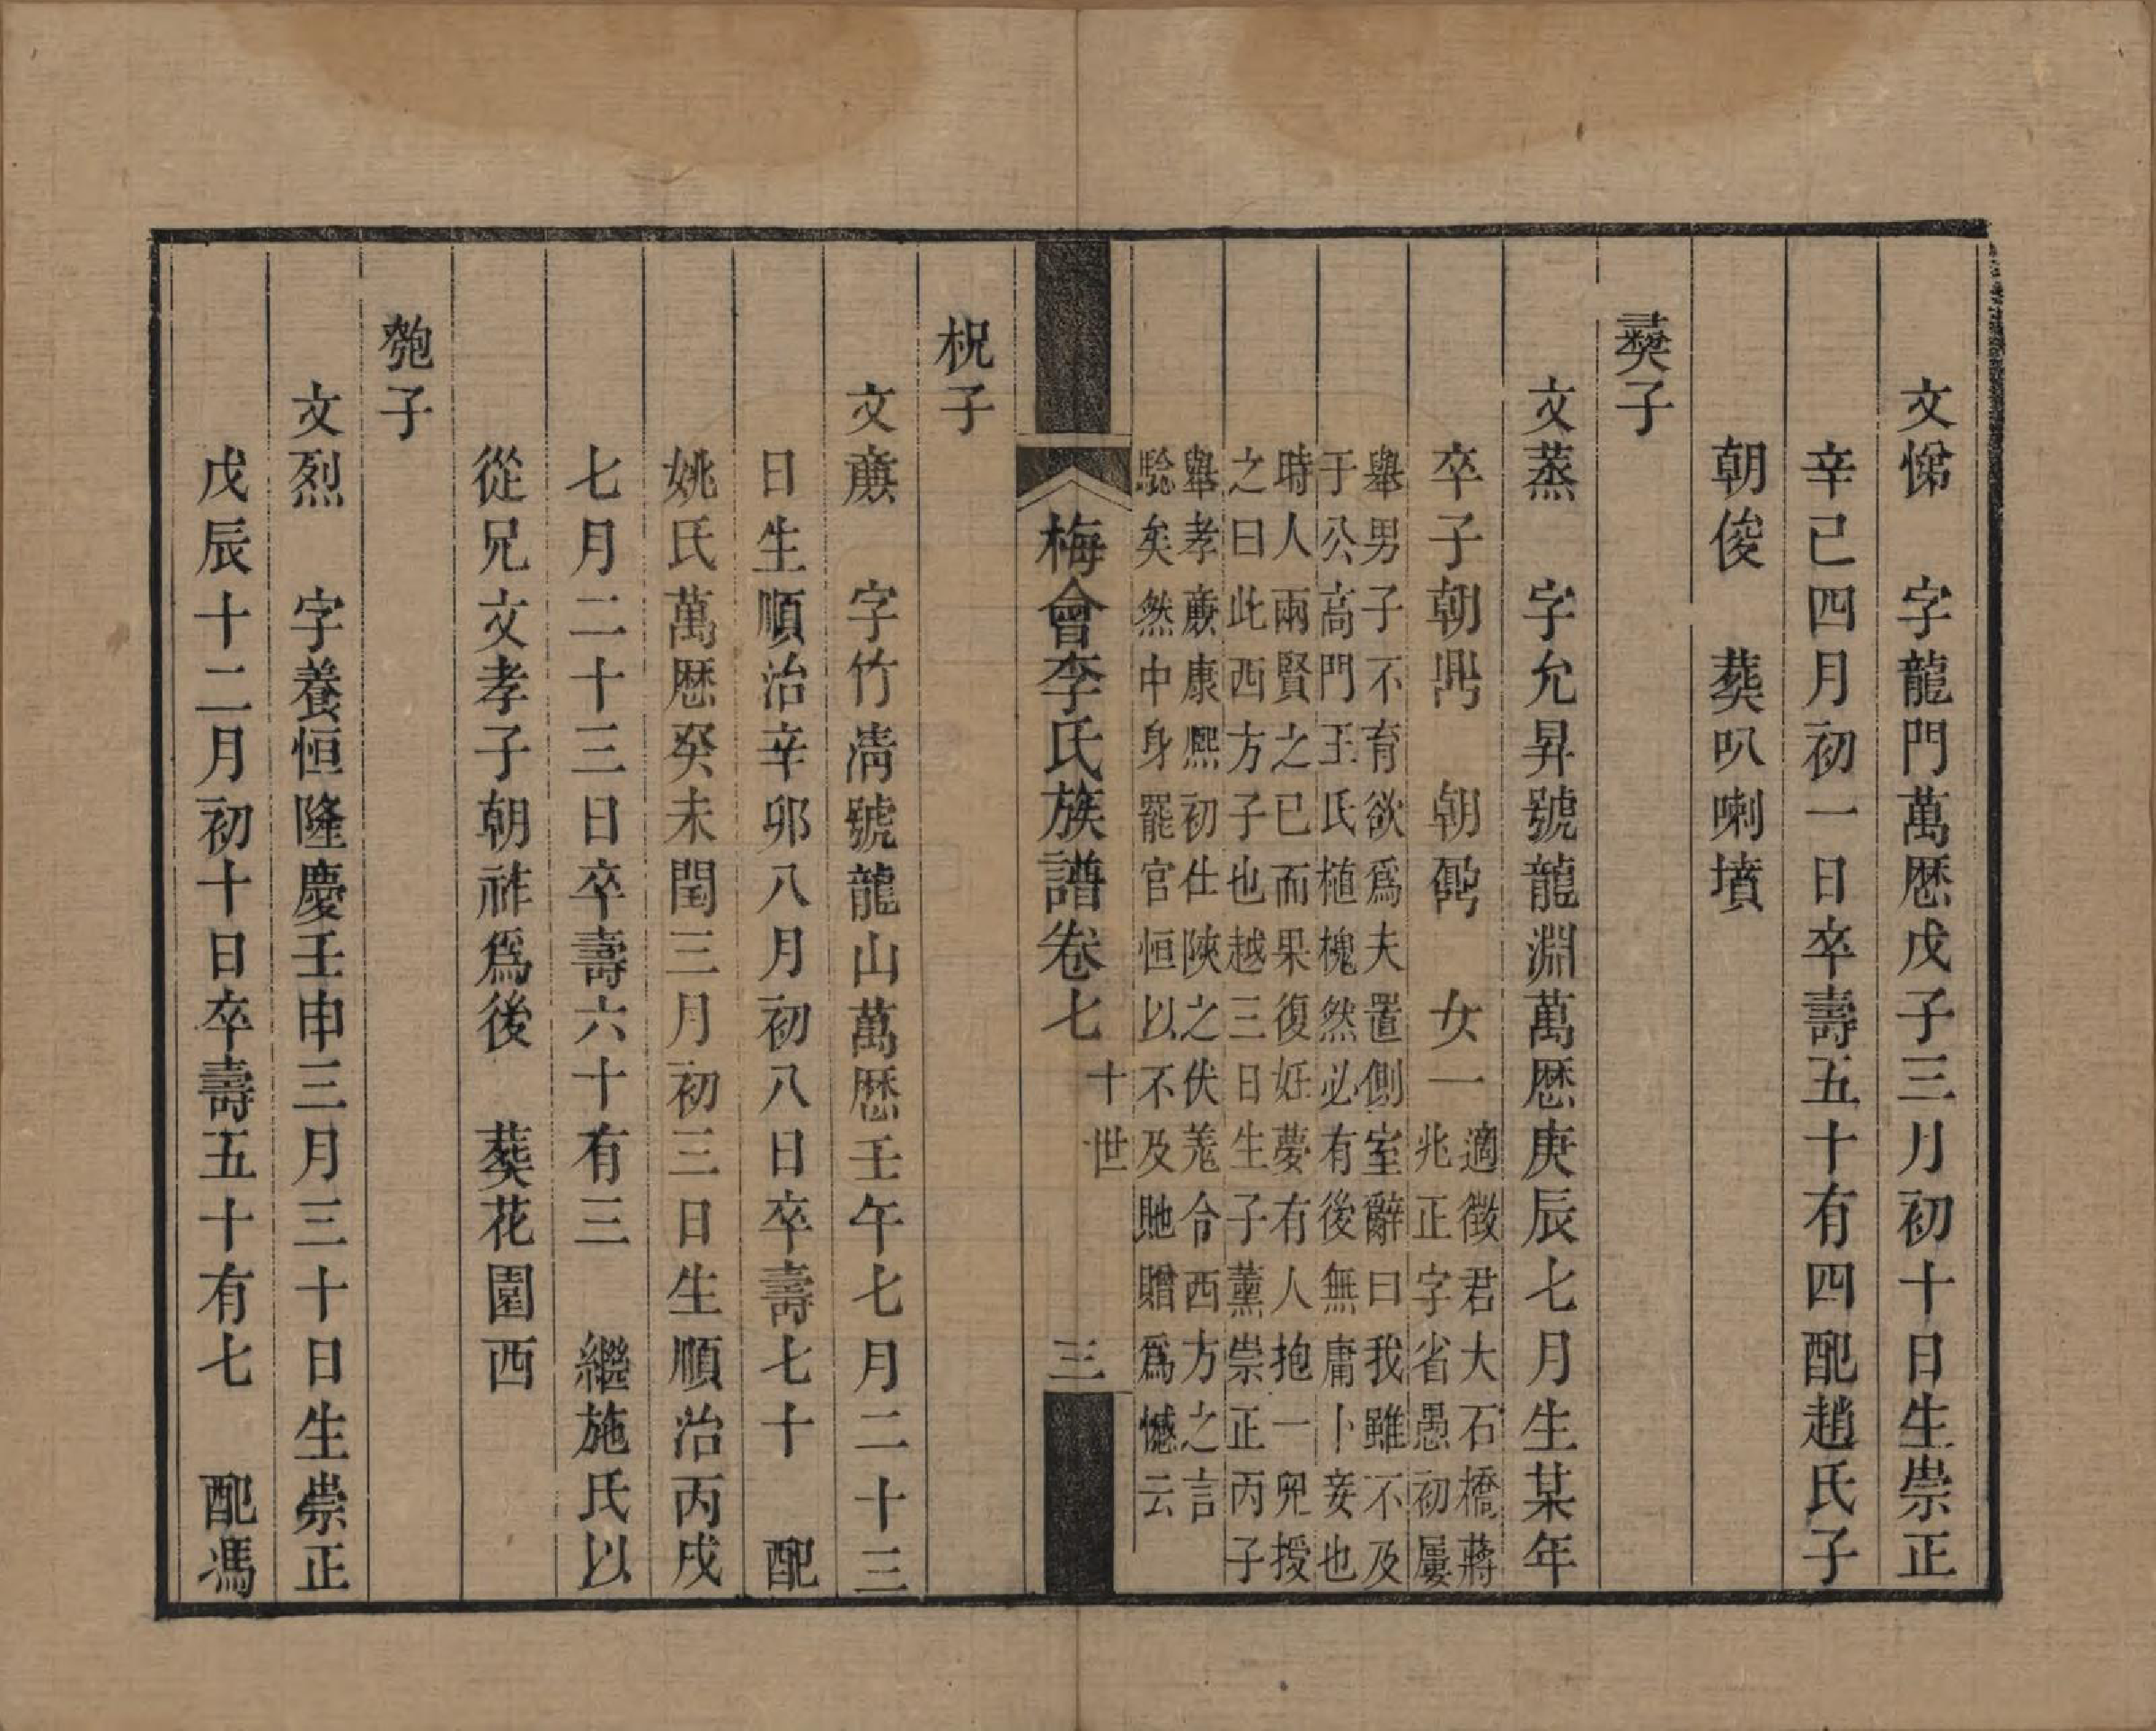 文悌　字龍門萬厯戊子三月初十日生崇正
辛巳四月初一日卒壽五十有四配趙氏子
朝俊　葬叭喇墳
彛子
文蒸　字允昇號龍淵萬厯庚辰七月生某年
卒子朝鼎　朝　女一適徵君大石橋蔣
兆正字省愚初屢
舉男子不育欲爲夫置側室辭曰我雖不及
于公高門王氏植槐然必有後無庸卜妾也
時人兩賢之已而果復妊夢有人抱一兒授
之曰此西方子也越三日生子薰崇正丙子
舉孝亷康熈初仕陜之伏羗令西方之言
騐矣然中身罷官恒以不及貤贈爲憾云
梅會李氏族譜卷七　十世　三
柷子
文亷　字竹淸號龍山萬厯壬午七月二十三
日生順治辛卯八月初八日卒壽七十　配
姚氏萬厯癸未閏三月初三日生順治丙戌
七月二十三日卒壽六十有三　繼施氏以
從兄文孝子朝祚爲後　葬花園西
匏子
文烈　字養恒隆慶壬申三月三十日生崇正
戊辰十二月初十日卒壽五十有七　配馮